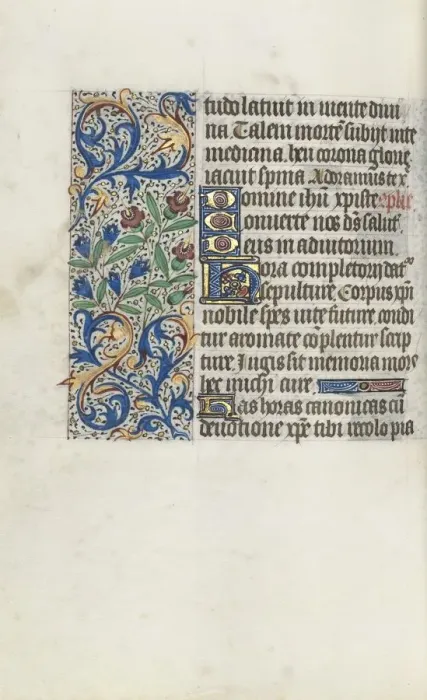 tudo latuit in mente diui
na Talem mortē subijt vite
medicina. heu corona glorie
iacuit spina Adoramus te x̄
Domine ihū xpiste eplā
Conuerte nos ds̄ salut̄.
Deus in adiutorium
Hora completorij dat̄
sepulture. Corpus xp̄i
nobile spes vite future condi
tur aromate cōplentur scrip
ture. Jugis sit memoria mor
hec michi cure.
Has horas canonicas cū
deuotione xpē tibi recolo pia